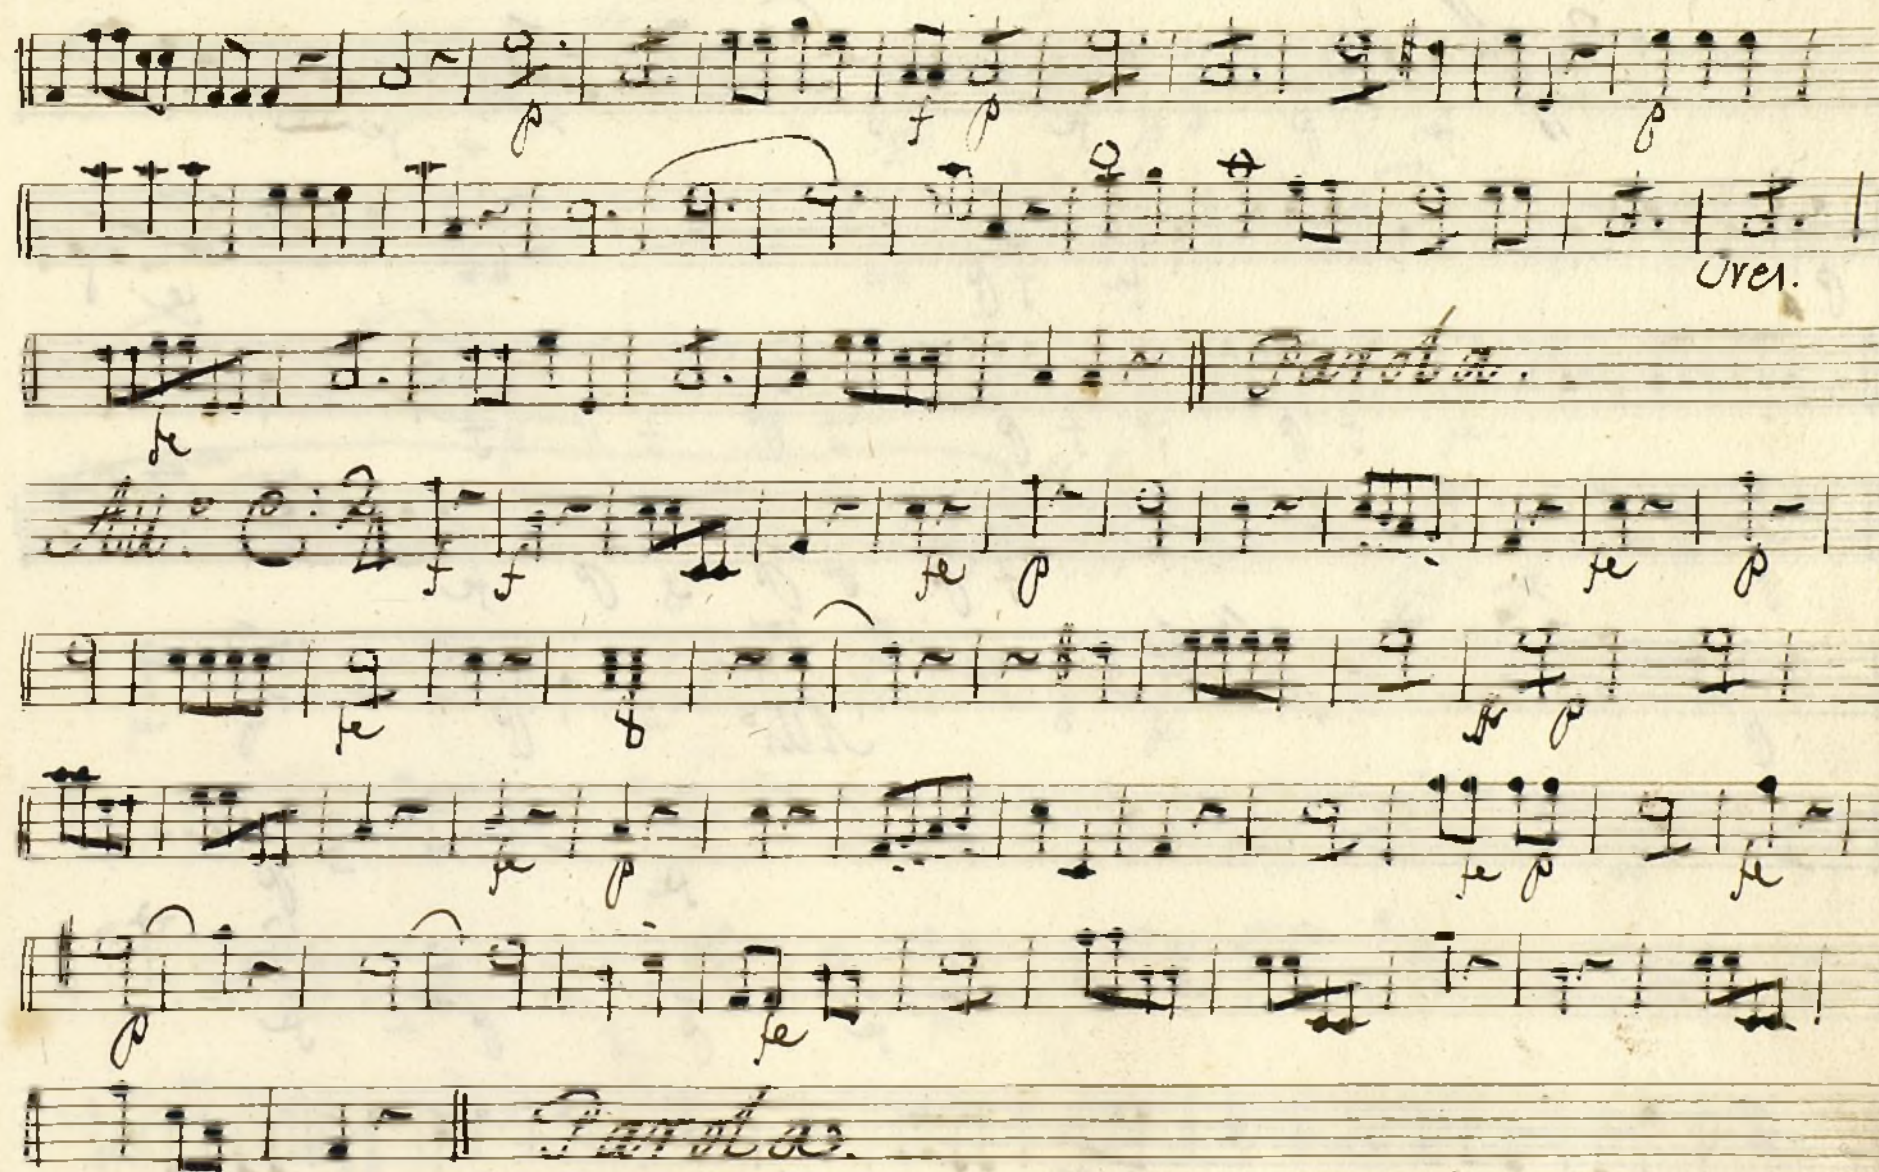 p f p p
Cres.
fe Parola.
All.º C: 2/4 f f fe p fe p
fe p
fe p fe p fe
p fe
Parola.